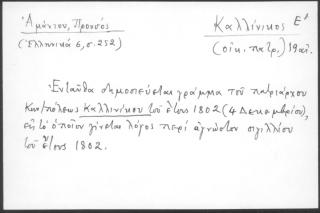 Ἀμάντου, Προυσός
(Ἑλληνικά 6, σ. 252)
Καλλίνικος Ε'
(οἰκ. πατρ.) 19 αἰ.
Ἐνταῦθα δημοσιεύεται γράμμα τοῦ πατριάρχου
Κων/πόλεως Καλλινίκου τοῦ ἔτους 1802 (4 Δεκεμβρίου),
εἰς τό ὁποῖον γίνεται λόγος περί ἀγνώστου σιγιλλίου
τοῦ ἔτους 1802.